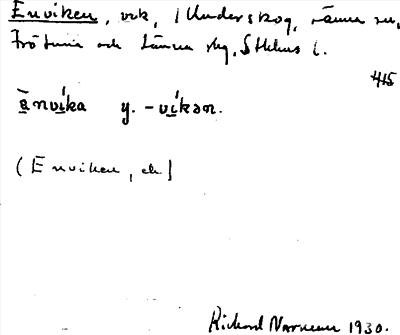 Enviken, vik, i Underskog, Länna sn,
Frötuna och Länna skg, Sthlms l.
415
ānvíka y. -víkan.
(Enviken, ek)
Richard Norrman 1930.